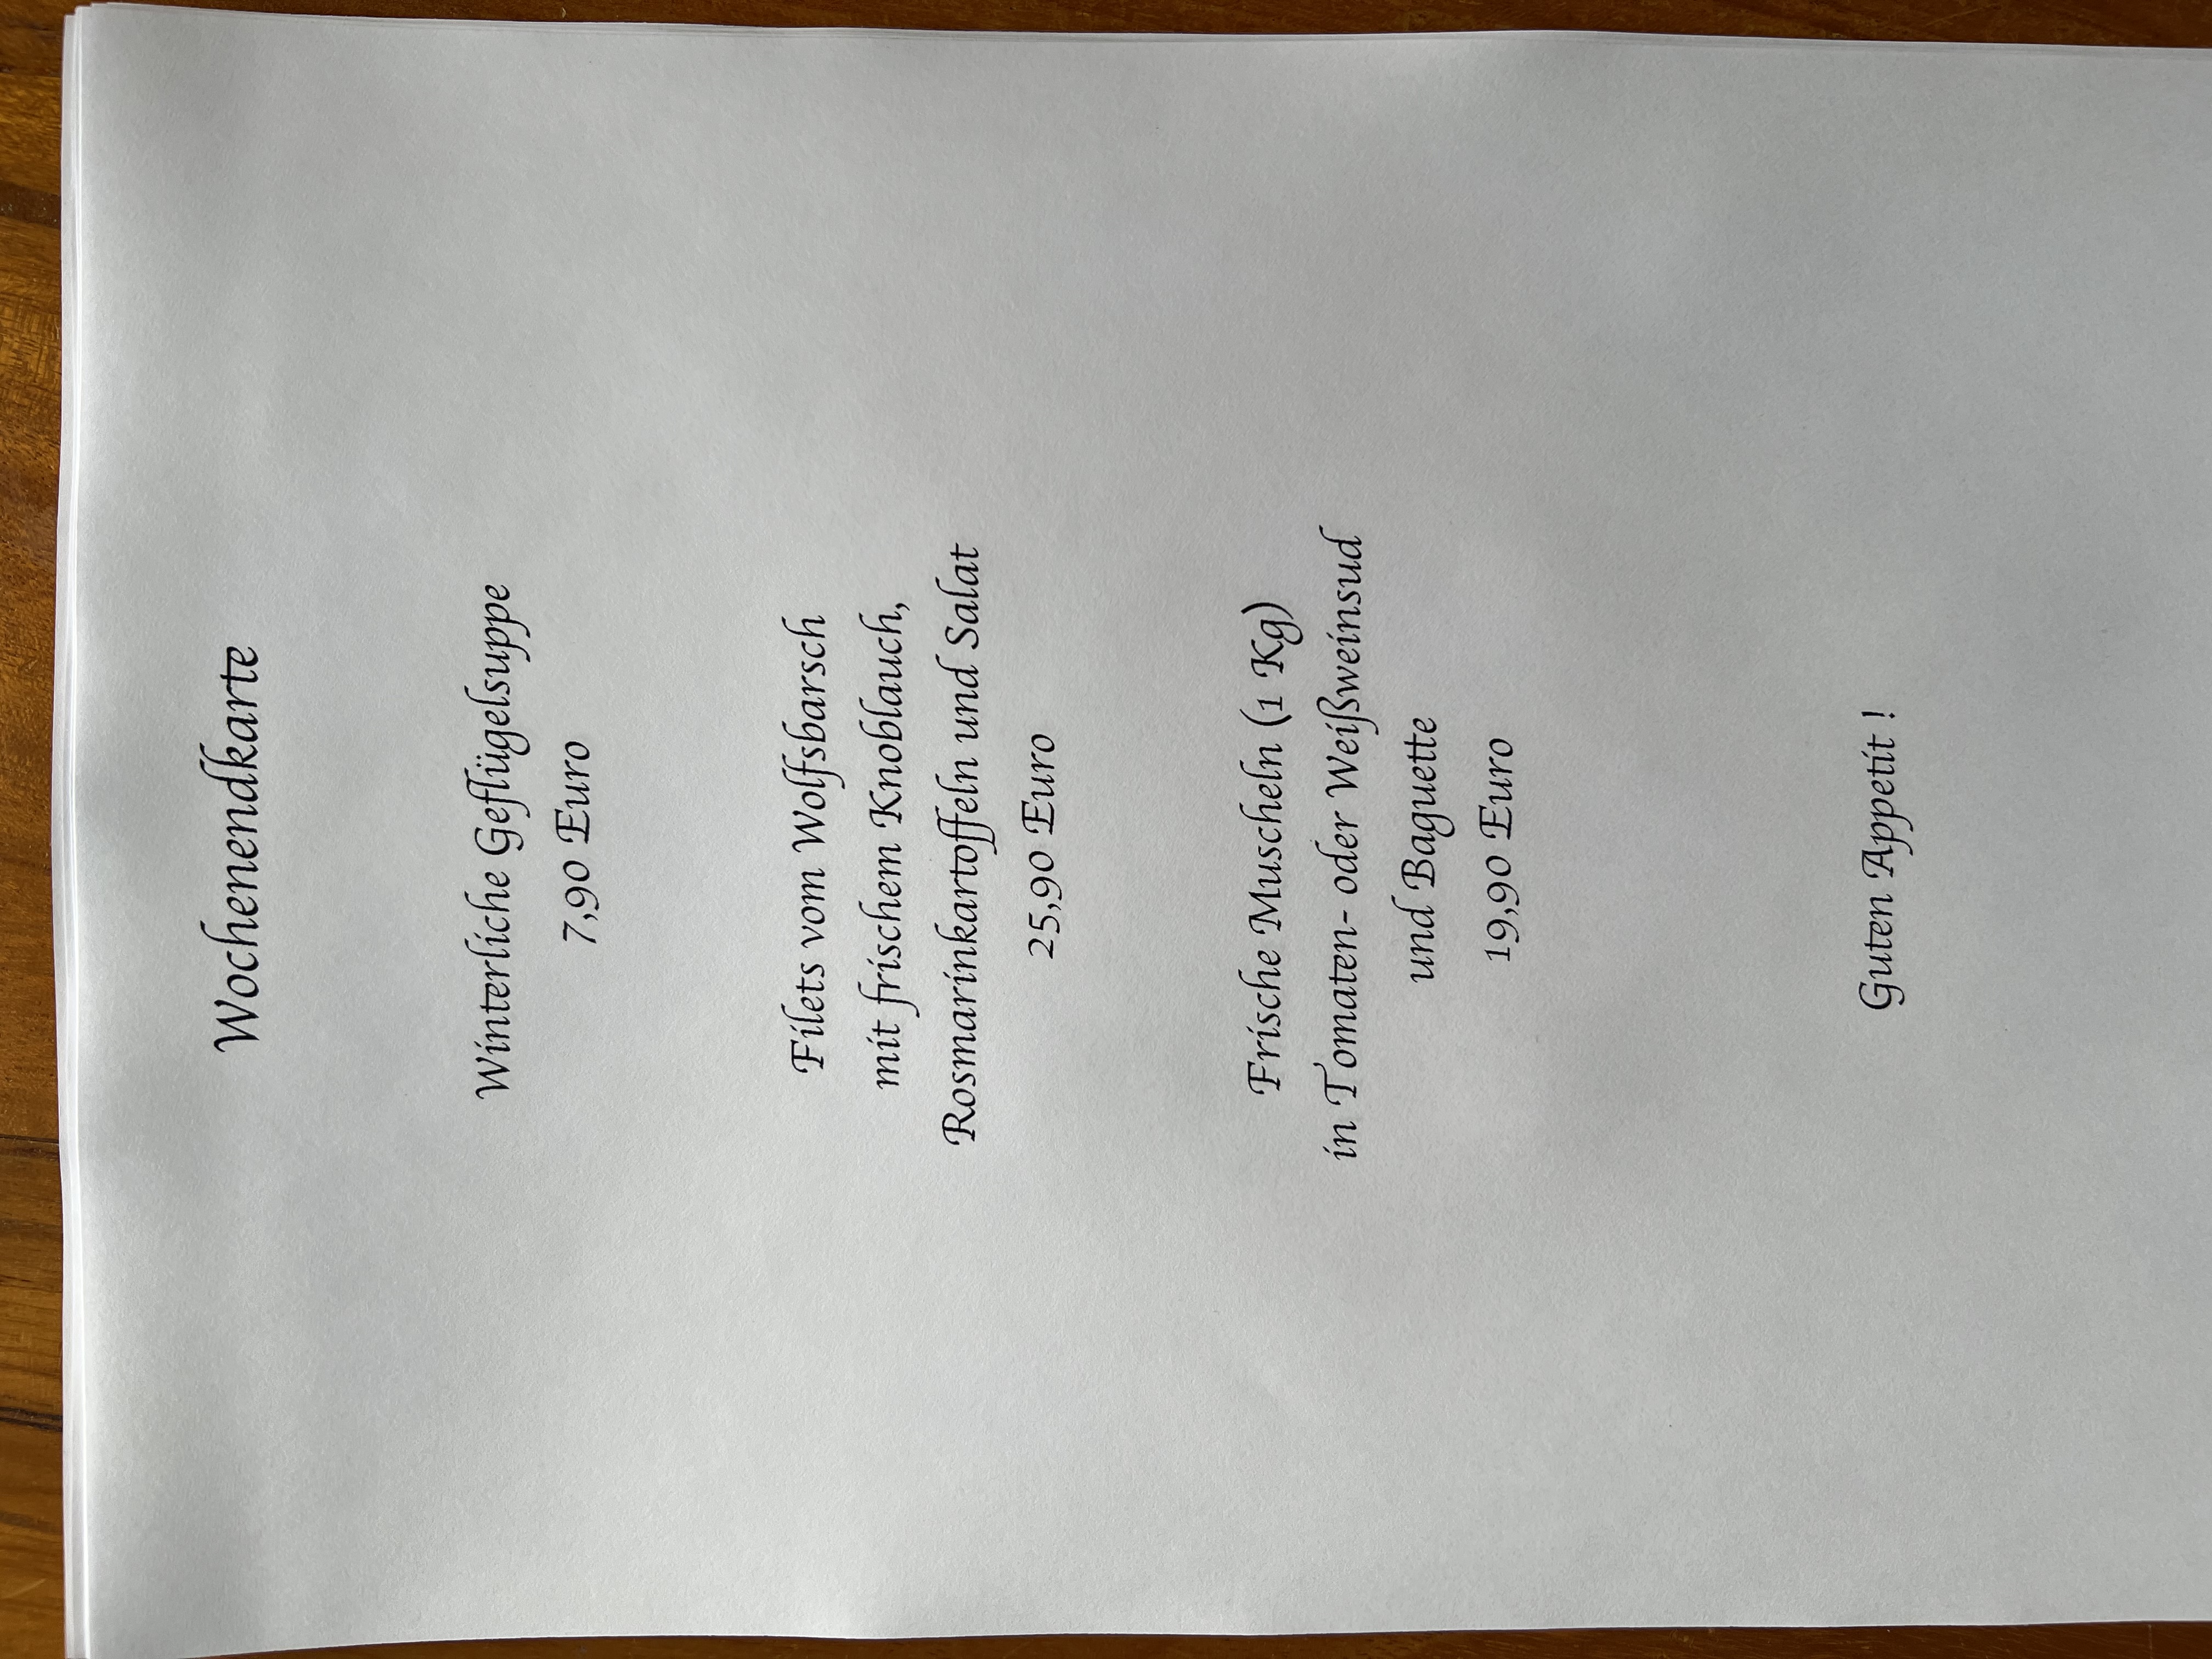 Wochenendkarte
Winterliche Geflügelsuppe
7,90 Euro
Filets vom Wolfsbarsch
mit frischem Knoblauch,
Rosmarinkartoffeln und Salat
25,90 Euro
Frische Muscheln (1 Kg)
in Tomaten- oder Weißweinsud
und Baguette
19,90 Euro
Guten Appetit !